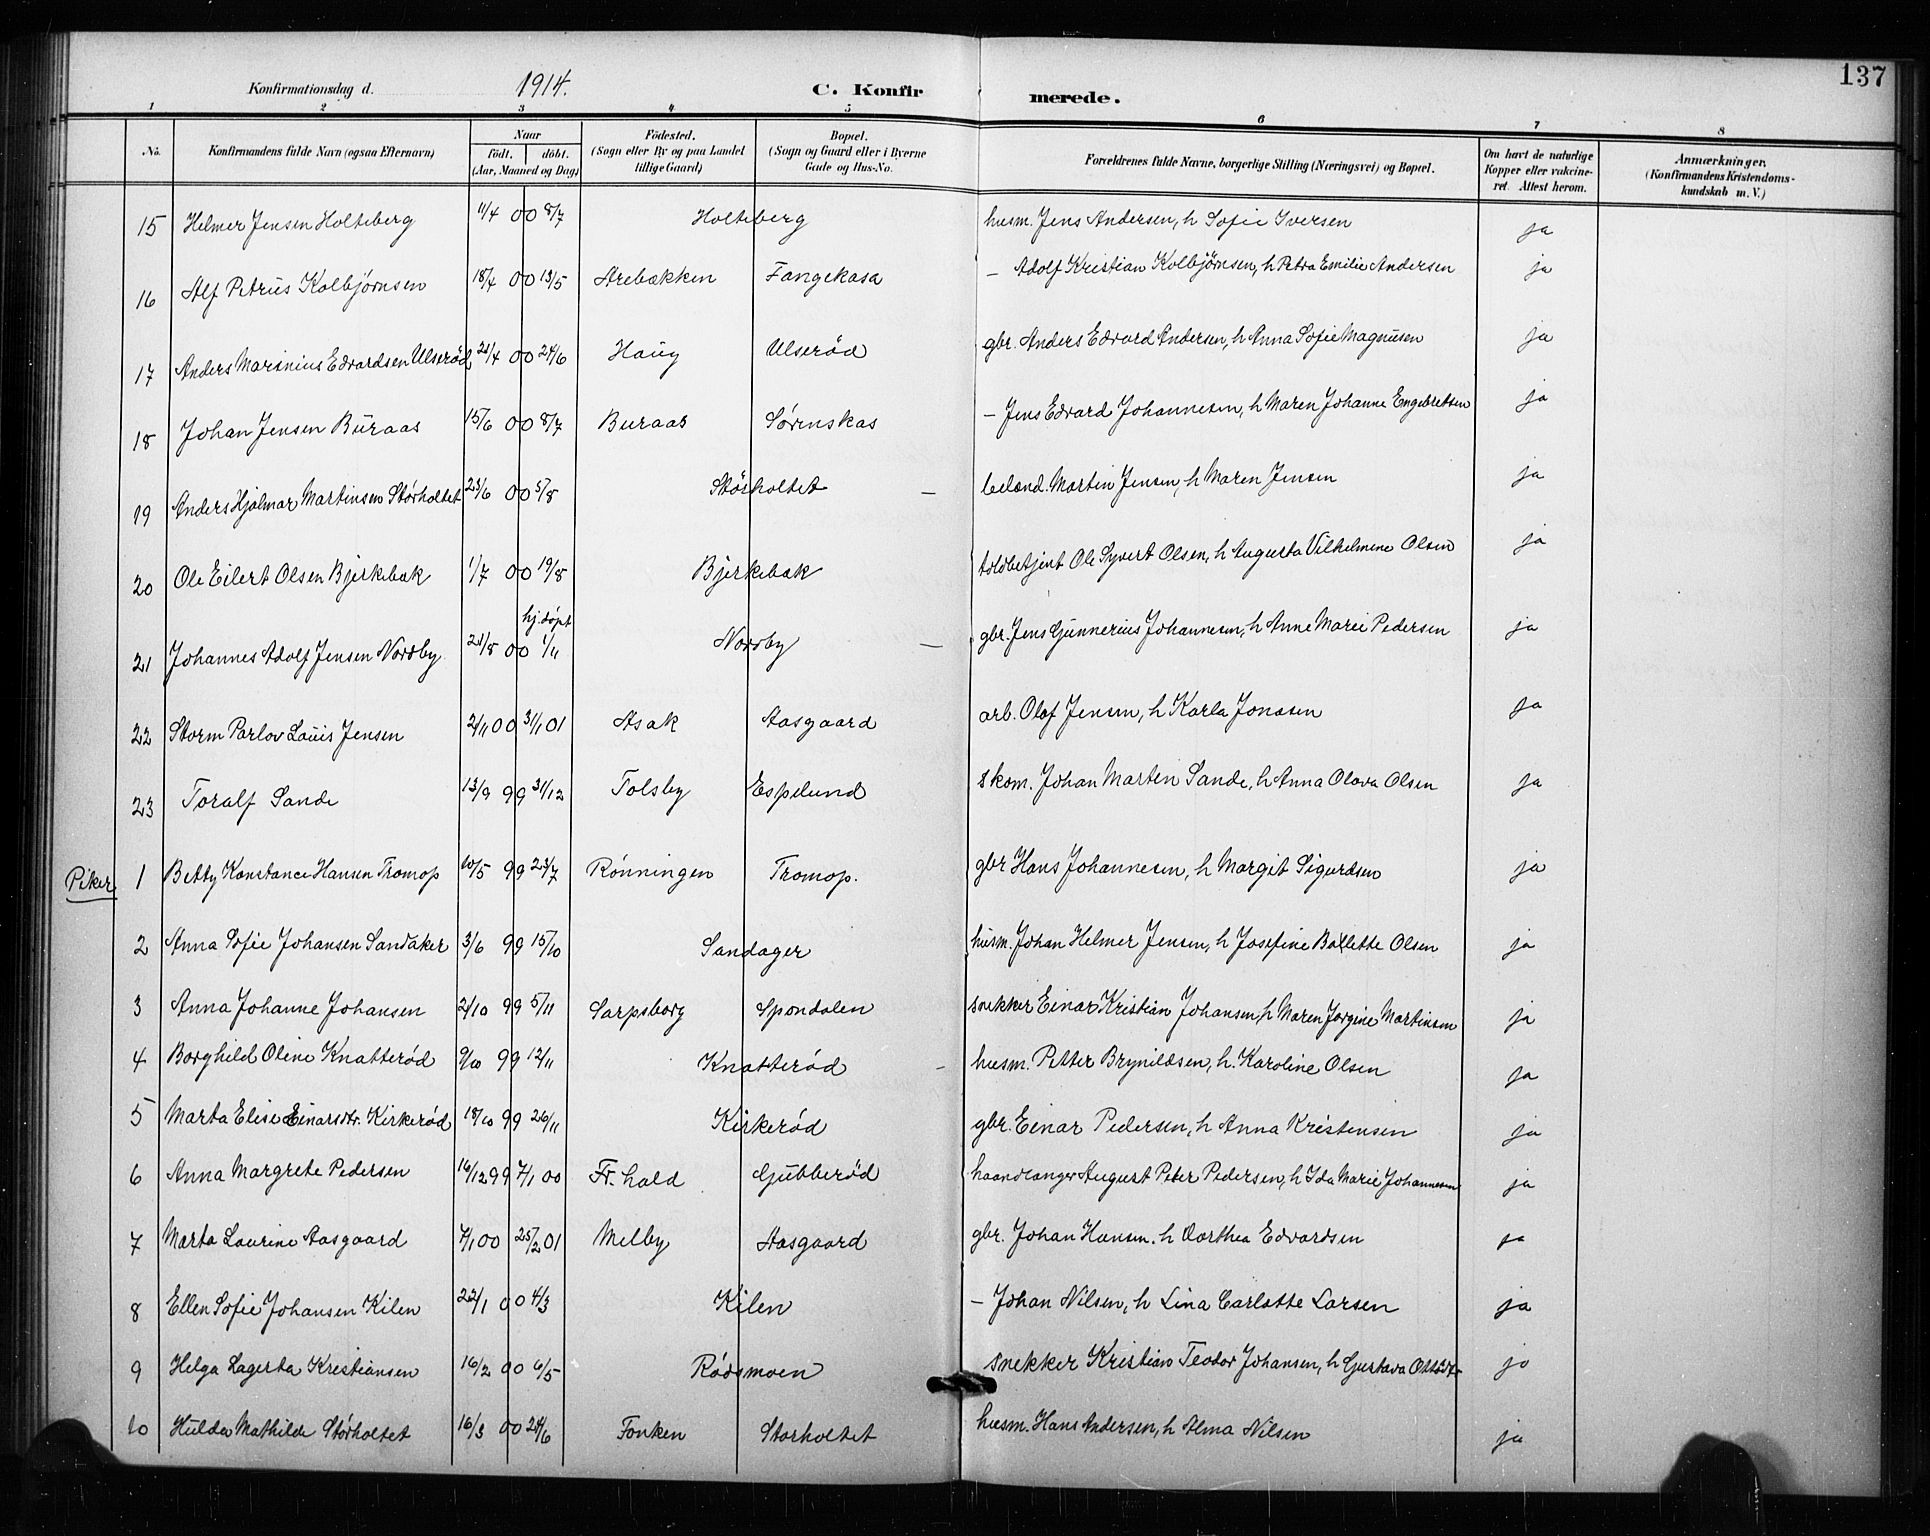 137
Konfirmationsdag d. 1914. C. Konfir merede.
1 2 3 4 5 6 7 8
No. Konfirmandens fulde Navn (ogsaa Efternavn) Naar födt. döbt. (Aar, Maaned og Dag) Födested. (Sogn eller By og paa Landet tillige Gaard) Bopæl. (Sogn og Gaard eller i Byerne Gade og Hus-No. Forældrenes fulde Navne, borgerlige Stilling (Næringsvei) og Bopæl. Om havt de naturlige Kopper eller vakcineret. Attest herom. Anmærkninger. (Konfirmandens Kristendomskundskab m. V.)
15 Helmer Jensen Holteberg 11/4 00 8/7 Holteberg husm. Jens Andersen, h Sofie Iversen ja
16 Alf Petrus Kolbjørnsen 18/4 00 13/5 Arebakken Fangekasa – Adolf Kristian Kolbjørnsen, h Petra Emilie Andersen ja
17 Anders Marinius Edvardsen Ulserød 21/4 00 24/6 Haug Ulserød gbr. Anders Edvard Andersen, h Anna Sofie Magnusen ja
18 Johan Jensen Buraas 15/6 00 8/7 Buraas Sørenskas – Jens Edvard Johannesen, h Maren Johanne Engebretsen ja
19 Anders Hjalmar Martinsen Störholtet 23/6 00 5/8 Störholtet – leilænd. Martin Jensen, h Maren Jensen ja
20 Ole Eilert Olsen Bjerkebæk 1/7 00 19/8 Bjerkebæk toldbetjent Ole Syvert Olsen, h Augusta Vilhelmine Olsen ja
hj. døpt
21 Johannes Adolf Jensen Nordby 21/8 00 1/11 Nordby – gbr. Jens Gunnerius Johannesen, h Anne Marie Pedersen ja
22 Storm Parlov Louis Jensen 2/11 00 31/1 01 Asak Aasgaard arb. Olaf Jensen, h Karla Jonasen ja
23 Toralf Sande 13/9 99 31/12 Tolsby Espelund skom. Johan Martin Sande, h Anna Olava Olsen ja
Piker 1 Betty Konstance Hansen Tromop 10/5 99 23/7 Rønningen Tromop. gbr Hans Johannesen, h Margit Sigurdsen ja
2 Anna Sofie Johansen Sandaker 3/6 99 15/10 Sandager husm. Johan Helmer Jensen, h Josefine Bollette Olsen ja
3 Anna Johanne Johansen 2/10 99 5/11 Sarpsborg Spondalen snekker Einar Kristian Johansen, h Maren Jørgine Martinsen ja
4 Borghild Oline Knatterød 9/10 99 12/11 Knatterød – husm. Petter Brynildsen, h. Karoline Olsen ja
5 Marta Elise Einarsdtr. Kirkerød 18/10 99 26/11 Kirkerød gbr. Einar Pedersen, h Anna Kristensen ja
6 Anna Margrete Pedersen 16/12 99 7/1 00 Fr. hald Gubberød haandlanger August Peter Pedersen, h Ida Marie Johannesen ja
7 Marta Laurine Aasgaard 7/1 00 25/2 01 Melby Aasgaard gbr. Johan Hansen. h Dorthea Edvardsen ja
8 Ellen Sofie Johansen Kilen 22/1 00 4/3 Kilen – Johan Nilsen, h Lina Carlotte Larsen ja
9 Helga Lagerta Kristiansen 16/2 00 6/5 Rødsmoen snekker Kristian Teodor Johansen, h Gustava Ottosdtr ja
10 Hulda Mathilde Störholtet 16/3 00 24/6 Fonken Storholtet husm. Hans Andersen, h Alma Nilsen ja